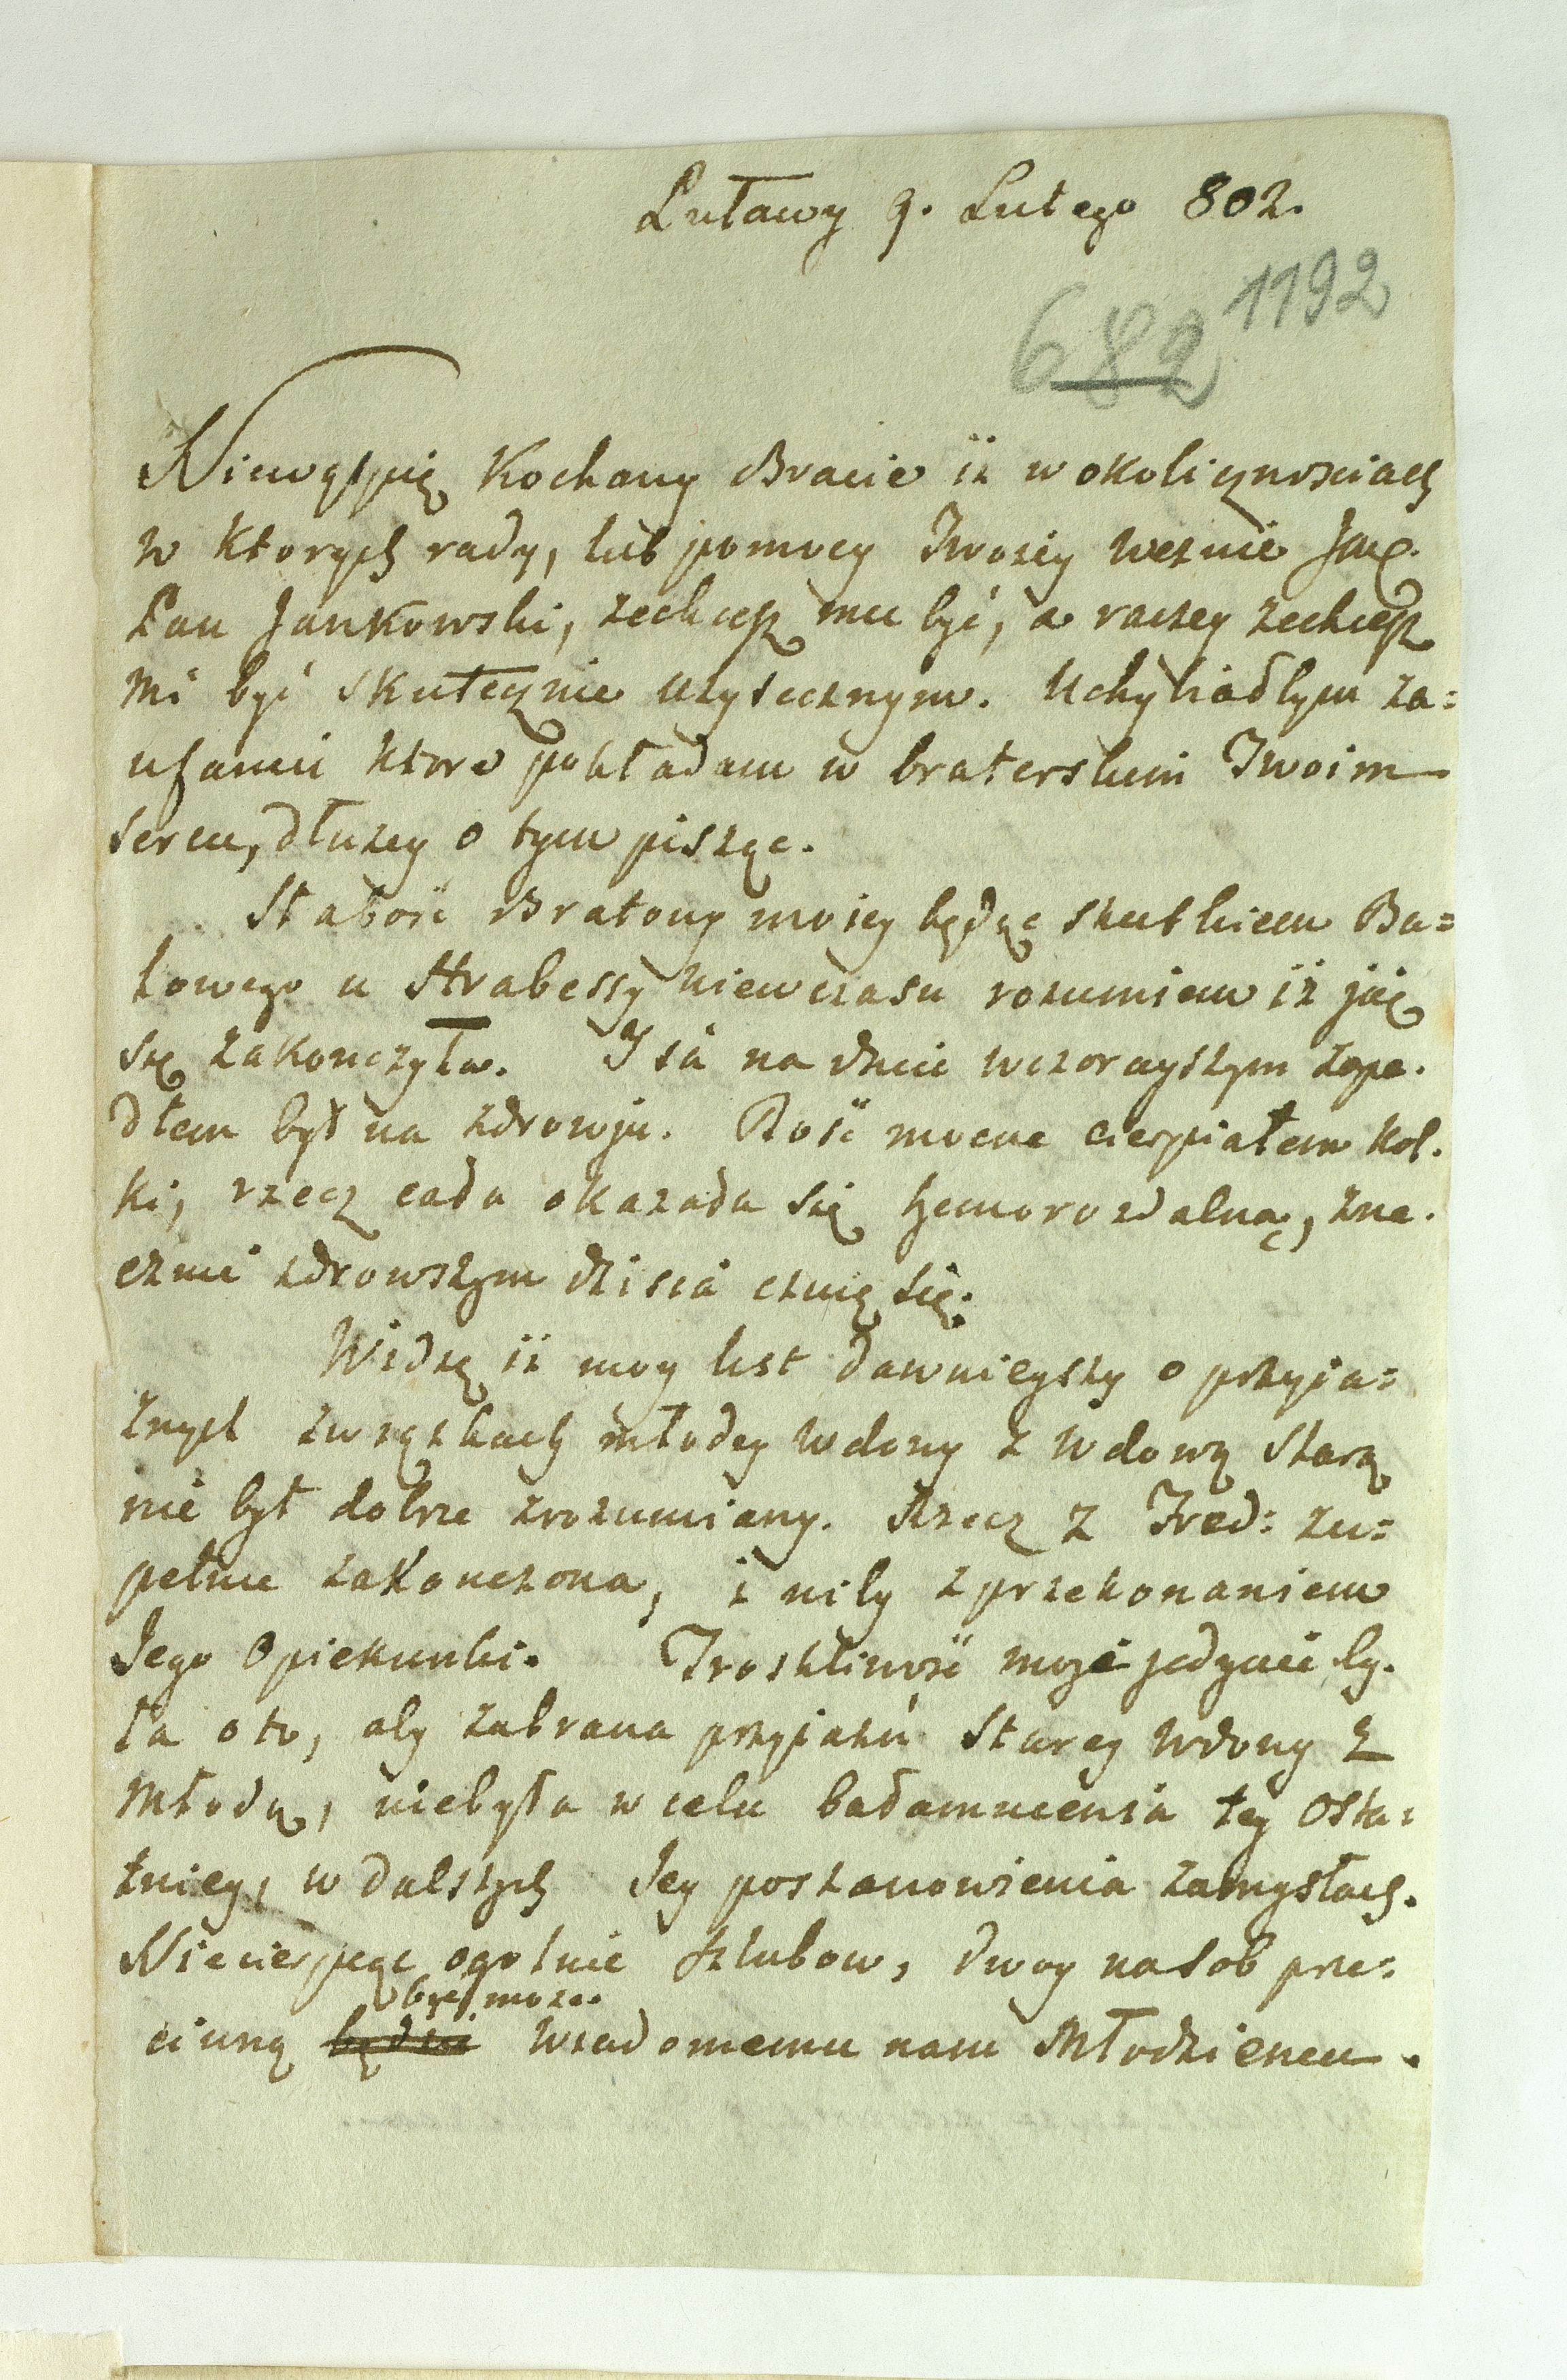 Puławy 9. Lutego 802.
1192
682
Niewątpię Kochany Bracie iż w okolicznosciach
w ktorych rady, lub pomocy Twoiey weznie Jmć.
Pan Jankowski, zechcesz mu być, a raczey zechcesz
mi być skutecznie uzytecznym. Uchybiałbym za=
ufaniu ktore pokładam w braterskim Twoim
sercu, dłuzey o tym pisząc.
Słabość Bratowy moiey będąc skutkiem Ba=
lowego u Hrabessy niewczasu rozumiem iż już
się zakonczyła. I ia na dniu wczorayszym zapa.
dłem był na zdrowju. Dość mocne cierpiałem kol.
ki, rzecz cała okazała się hemoroidalną, zna.
cznie zdrowszym dzisia czuię się.
Widzę iż moy list dawnieyszy o przyia=
znych związkach młodey wdowy z wdową starą
nie był dobrze zrozumiany. Rzecz z Fred: zu=
pełnie zakonczona, i niby z przekonaniem
Jego Opiekunki. Troskliwość moja jedynie by.
ła o to, aby zabrana przyjazń Starey Wdowy z
Młodą, niebyła w celu bałamucenia tey osta=
tniey, w dalszych Jey postanowienia zamysłach.
Niecierpiąc ogolnie Klubow, dwoy nasob prze=
ciwną będzie być może. wiadomemu nam Młodziencu.